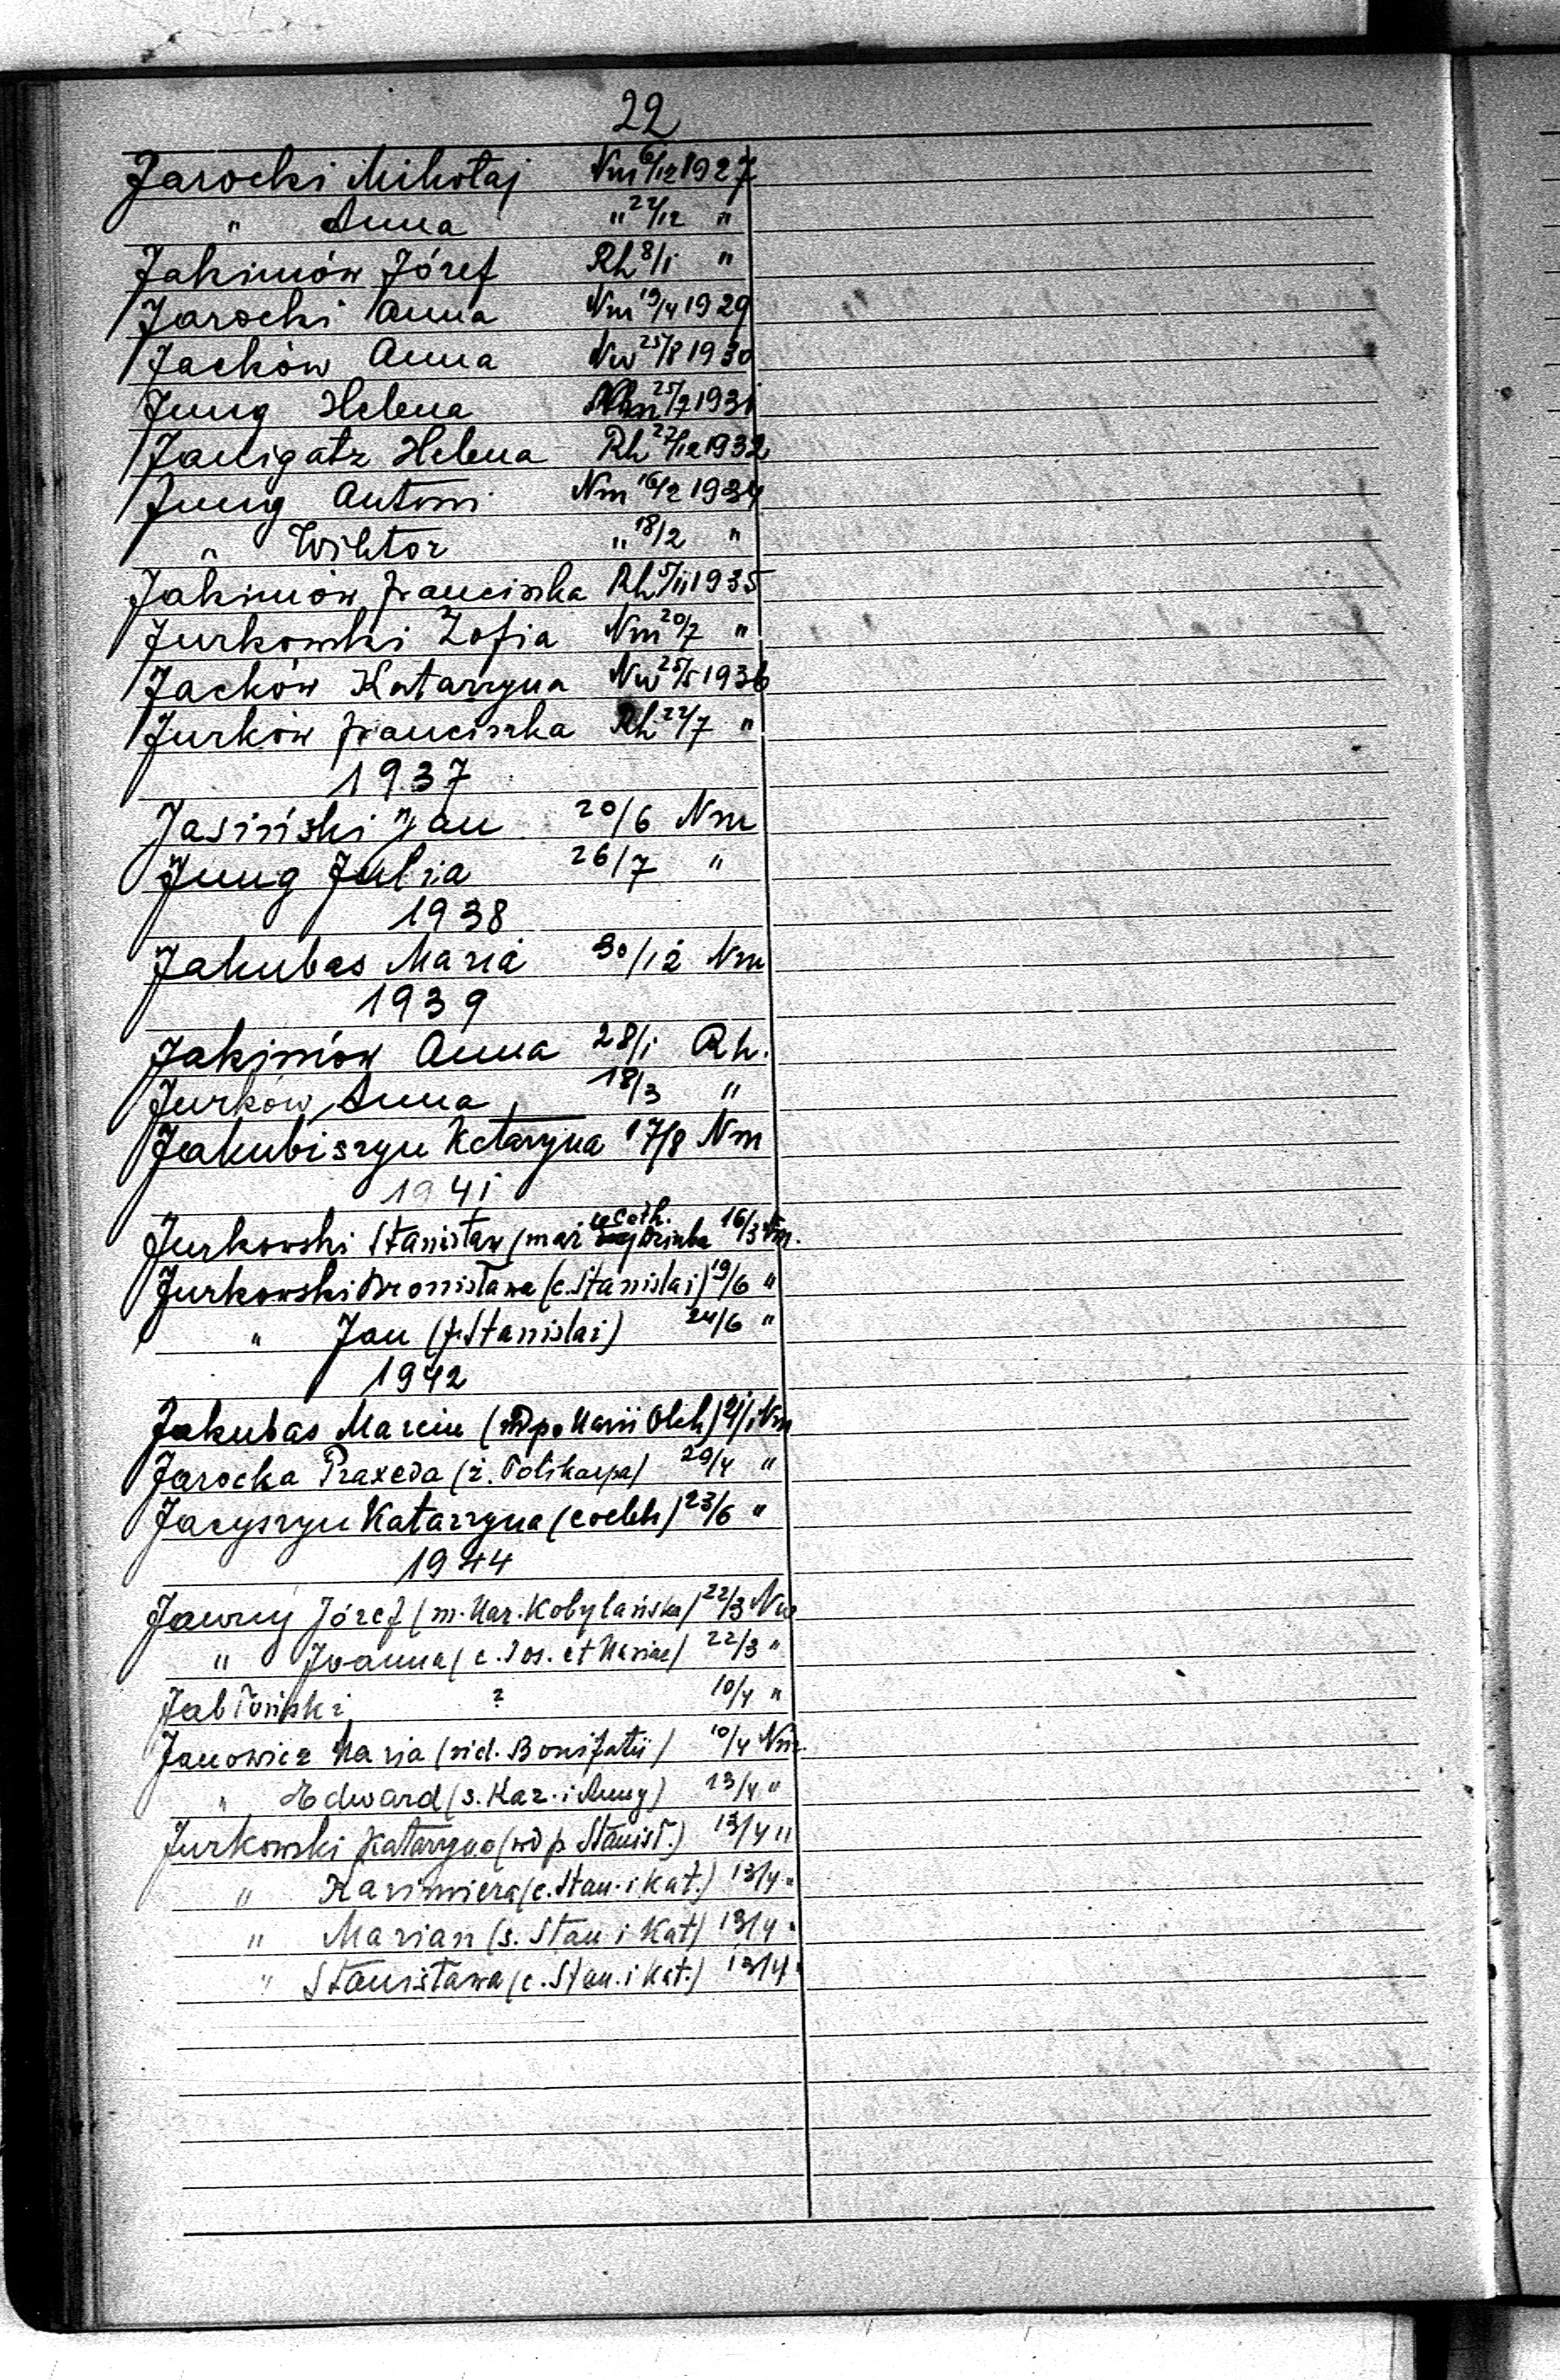 22
Jarocki Mikołaj Nm 6/12 1927
" Anna " 22/12 "
Jakimów Józef Rh 8/1 "
Jarocki Anna Nm 19/4 1929
Jacków Anna Nw 25/8 1930
Jung Helena 25/7 1931
Janigatz Helena Rh 27/12 1932
Jung Antoni Nm 16/2 1934
" Wiktor " 18/2 "
Jakimów Franciszka Rh 5/11 1935
Jurkowski Zofia Nm 20/7 "
Jacków Katarzyna Nw 25/5 1936
Jurków Franciszka Rh 22/7 "
1937
Jasiński Jan 20/6 Nm
Jung Julia 26/7 "
1938
Jakubas Maria 30/12 Nm
1939
Jakimów Anna 28/1 Rh.
Jurków Anna 18/3 "
Jakubiszyn Katarzyna 17/8 Nm
1941
Jurkowski Stanisław (mąż Cath. 16/3 Nm.
Jurkowski Bronisława (c. Stanislai) 19/6 "
" Jan (f. Stanislai) 24/6 "
1942
Jakubas Marcin (wd po Marii Olch) Nm
Jarocka Praxeda (ż. Polikarpa) 20/4 "
Jacyszyn Katarzyna (coelebs) 23/6 "
1944
Jawny Józef (m. Mar. Kobylańska) 22/3 Nw
" Joanna (c. Jos. et Mariae) 22/3 "
Jabłoński ? 10/4 "
Janowicz Maria (vid. Bonifatii) 10/4 Nm.
" Edward (s. Kaz. i Anny) 13/4 "
Jurkowski Katarzyna (wd p. Stanisł.) 13/4 "
" Kazimiera (c. Stan. i Kat.) 13/4 "
" Marian (s. Stan i Kat) 13/4 "
" Stanisława (c. Stan. i Kat.) 13/4 "